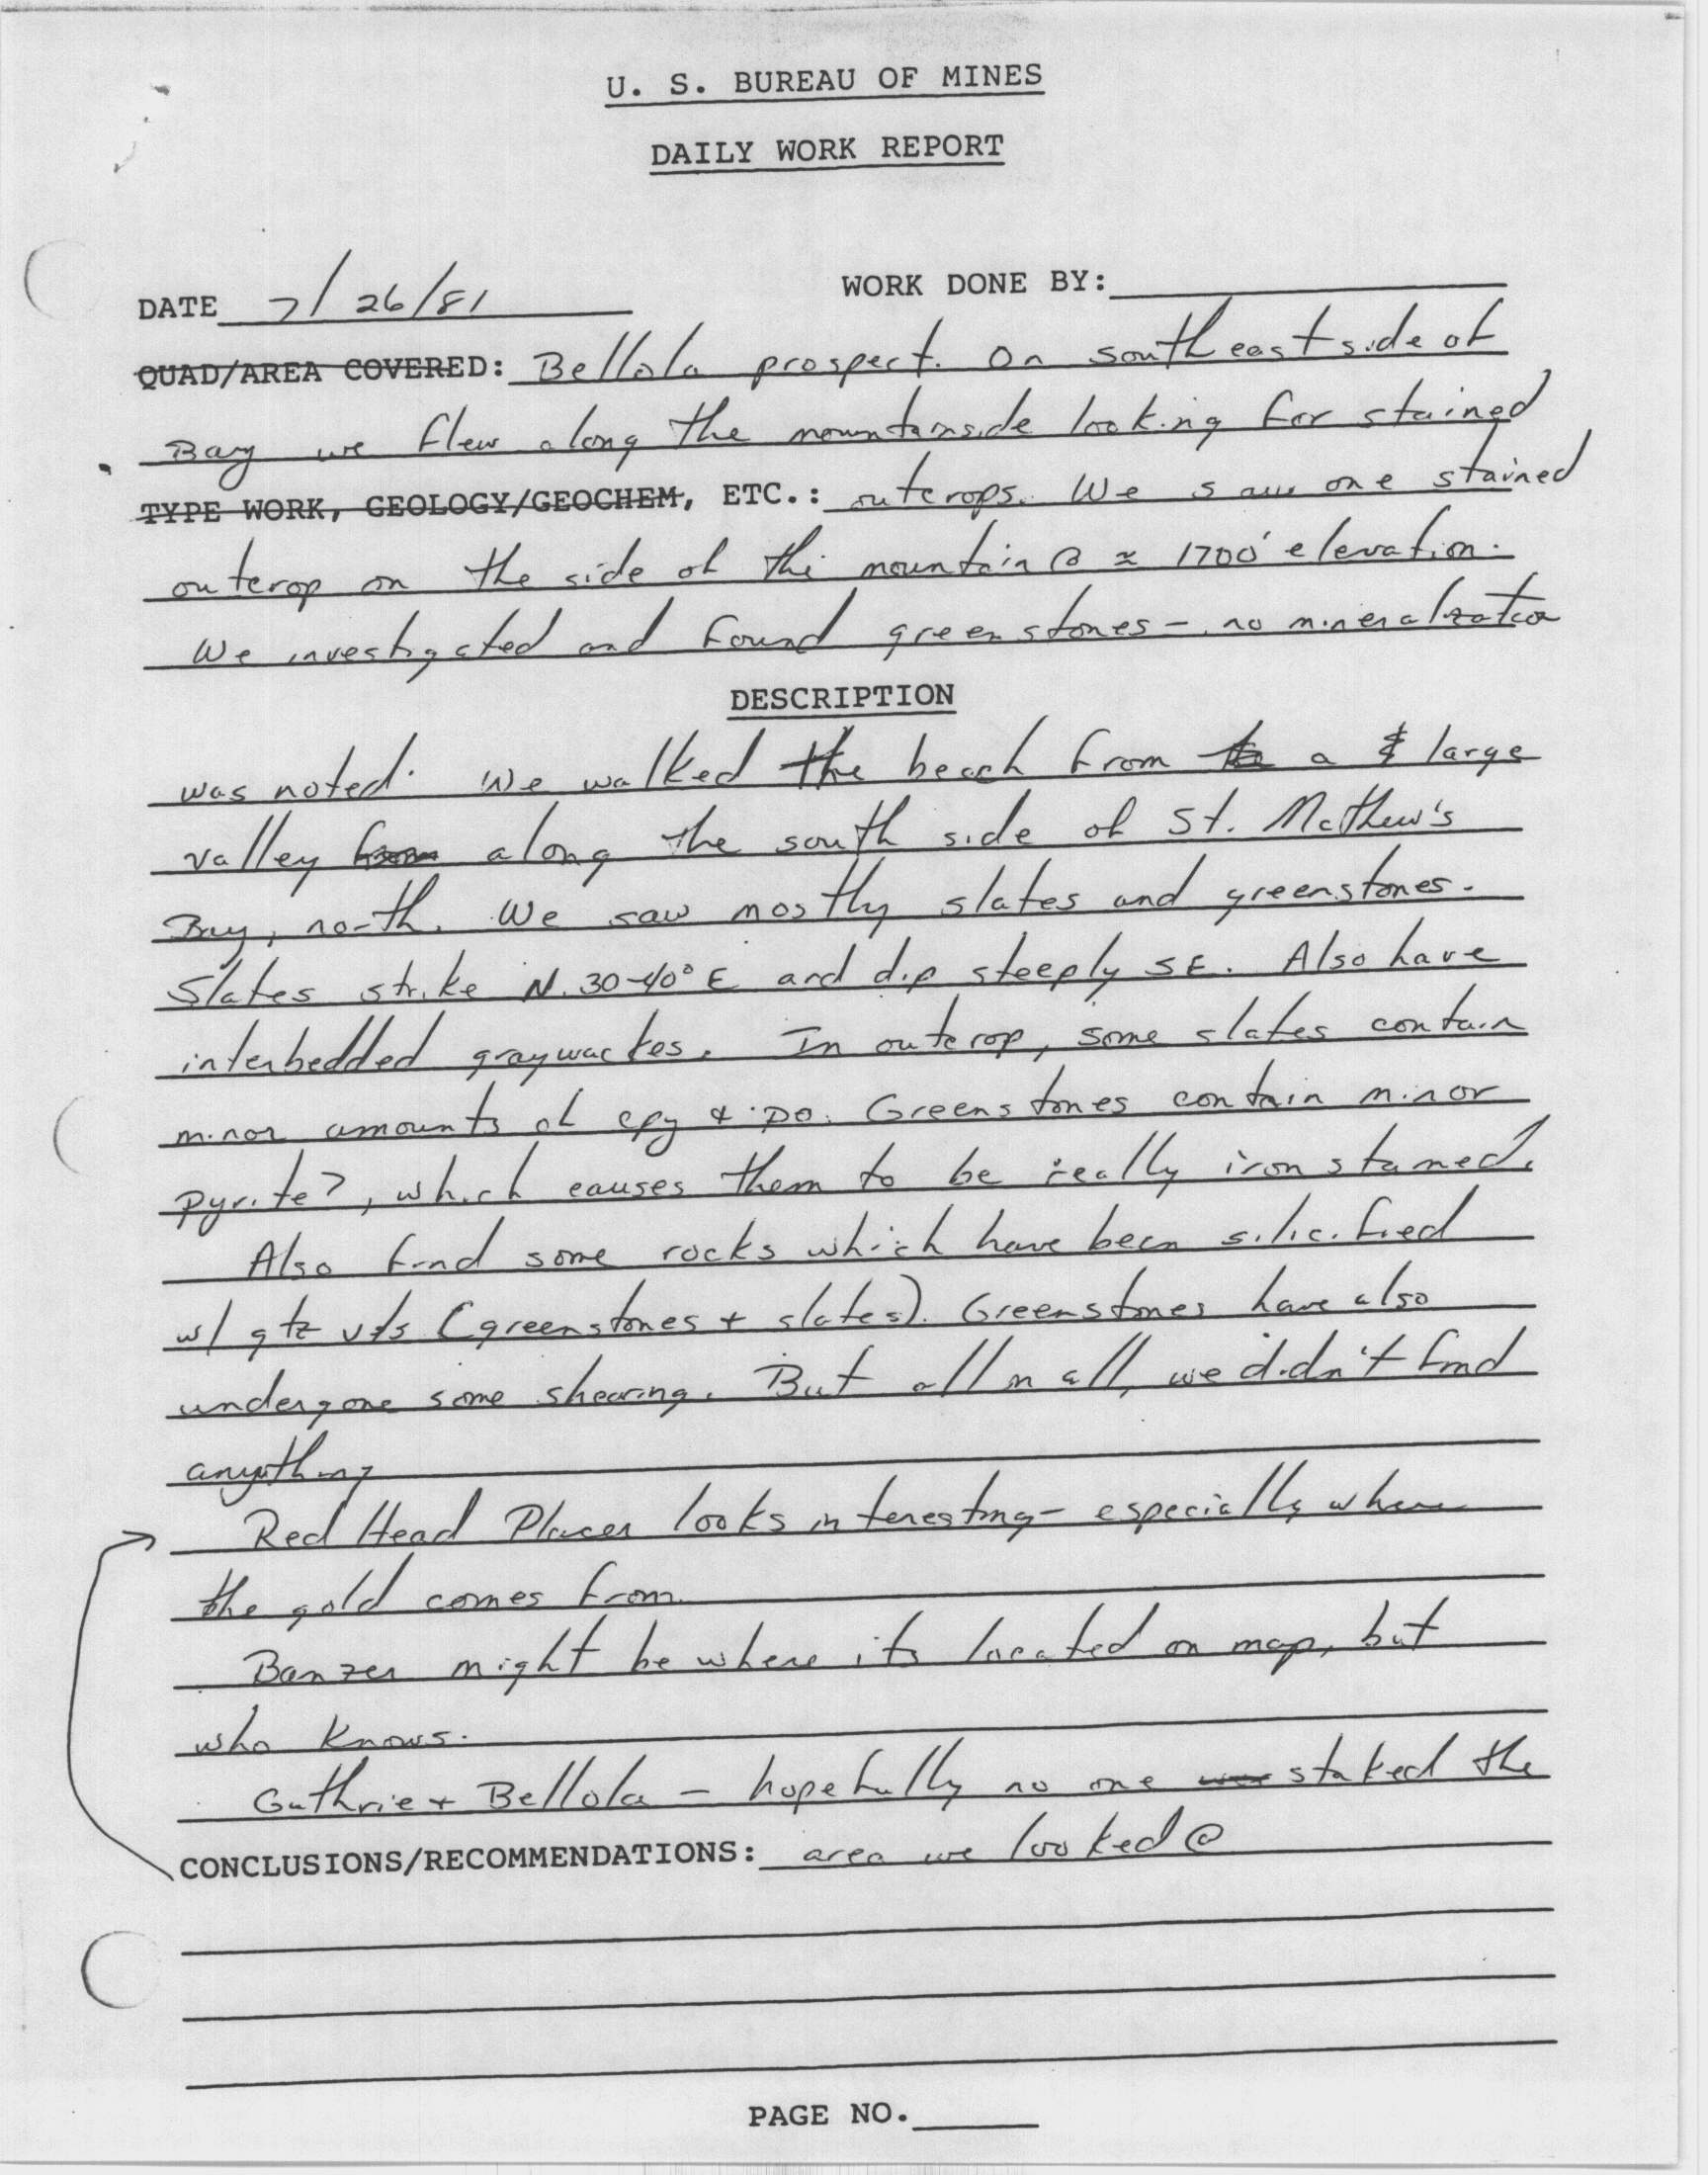 U. S. BUREAU OF MINES
DAILY WORK REPORT
DATE 7/26/81 WORK DONE BY:
QUAD/AREA COVERED: Bellola prospect. On southeast side of
Bay we flew along the mountainside looking for stained
TYPE WORK, GEOLOGY/GEOCHEM, ETC.: outcrops. We saw one stained
outcrop on the side of the mountain @ ≈ 1700' elevation.
We investigated and found greenstones - no mineralization
DESCRIPTION
was noted. We walked the beach from a large
valley from along the south side of St. Mathew's
Bay, north. We saw mostly slates and greenstones.
Slates strike N. 30-40° E and dip steeply SE. Also have
interbedded graywackes. In outcrop, some slates contain
minor amounts of cpy & po. Greenstones contain minor
pyrite?, which causes them to be really iron stained.
Also find some rocks which have been silicified
w/ qtz vts (greenstones + slates). Greenstones have also
undergone some shearing. But all in all, we didn't find
anything
Red Head Placer looks interesting - especially where
the gold comes from.
Banzer might be where its located on map, but
who knows.
Guthrie + Bellola - hopefully no one staked the
CONCLUSIONS/RECOMMENDATIONS: area we looked @
PAGE NO.